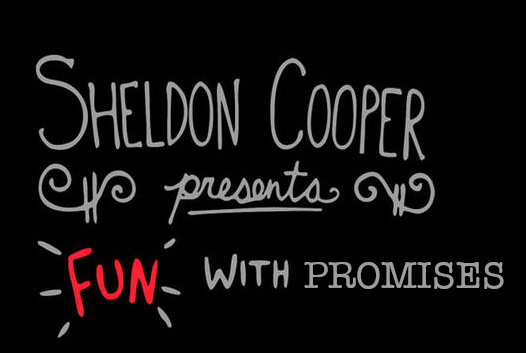 SHELDON COOPER
presents
FUN WITH PROMISES